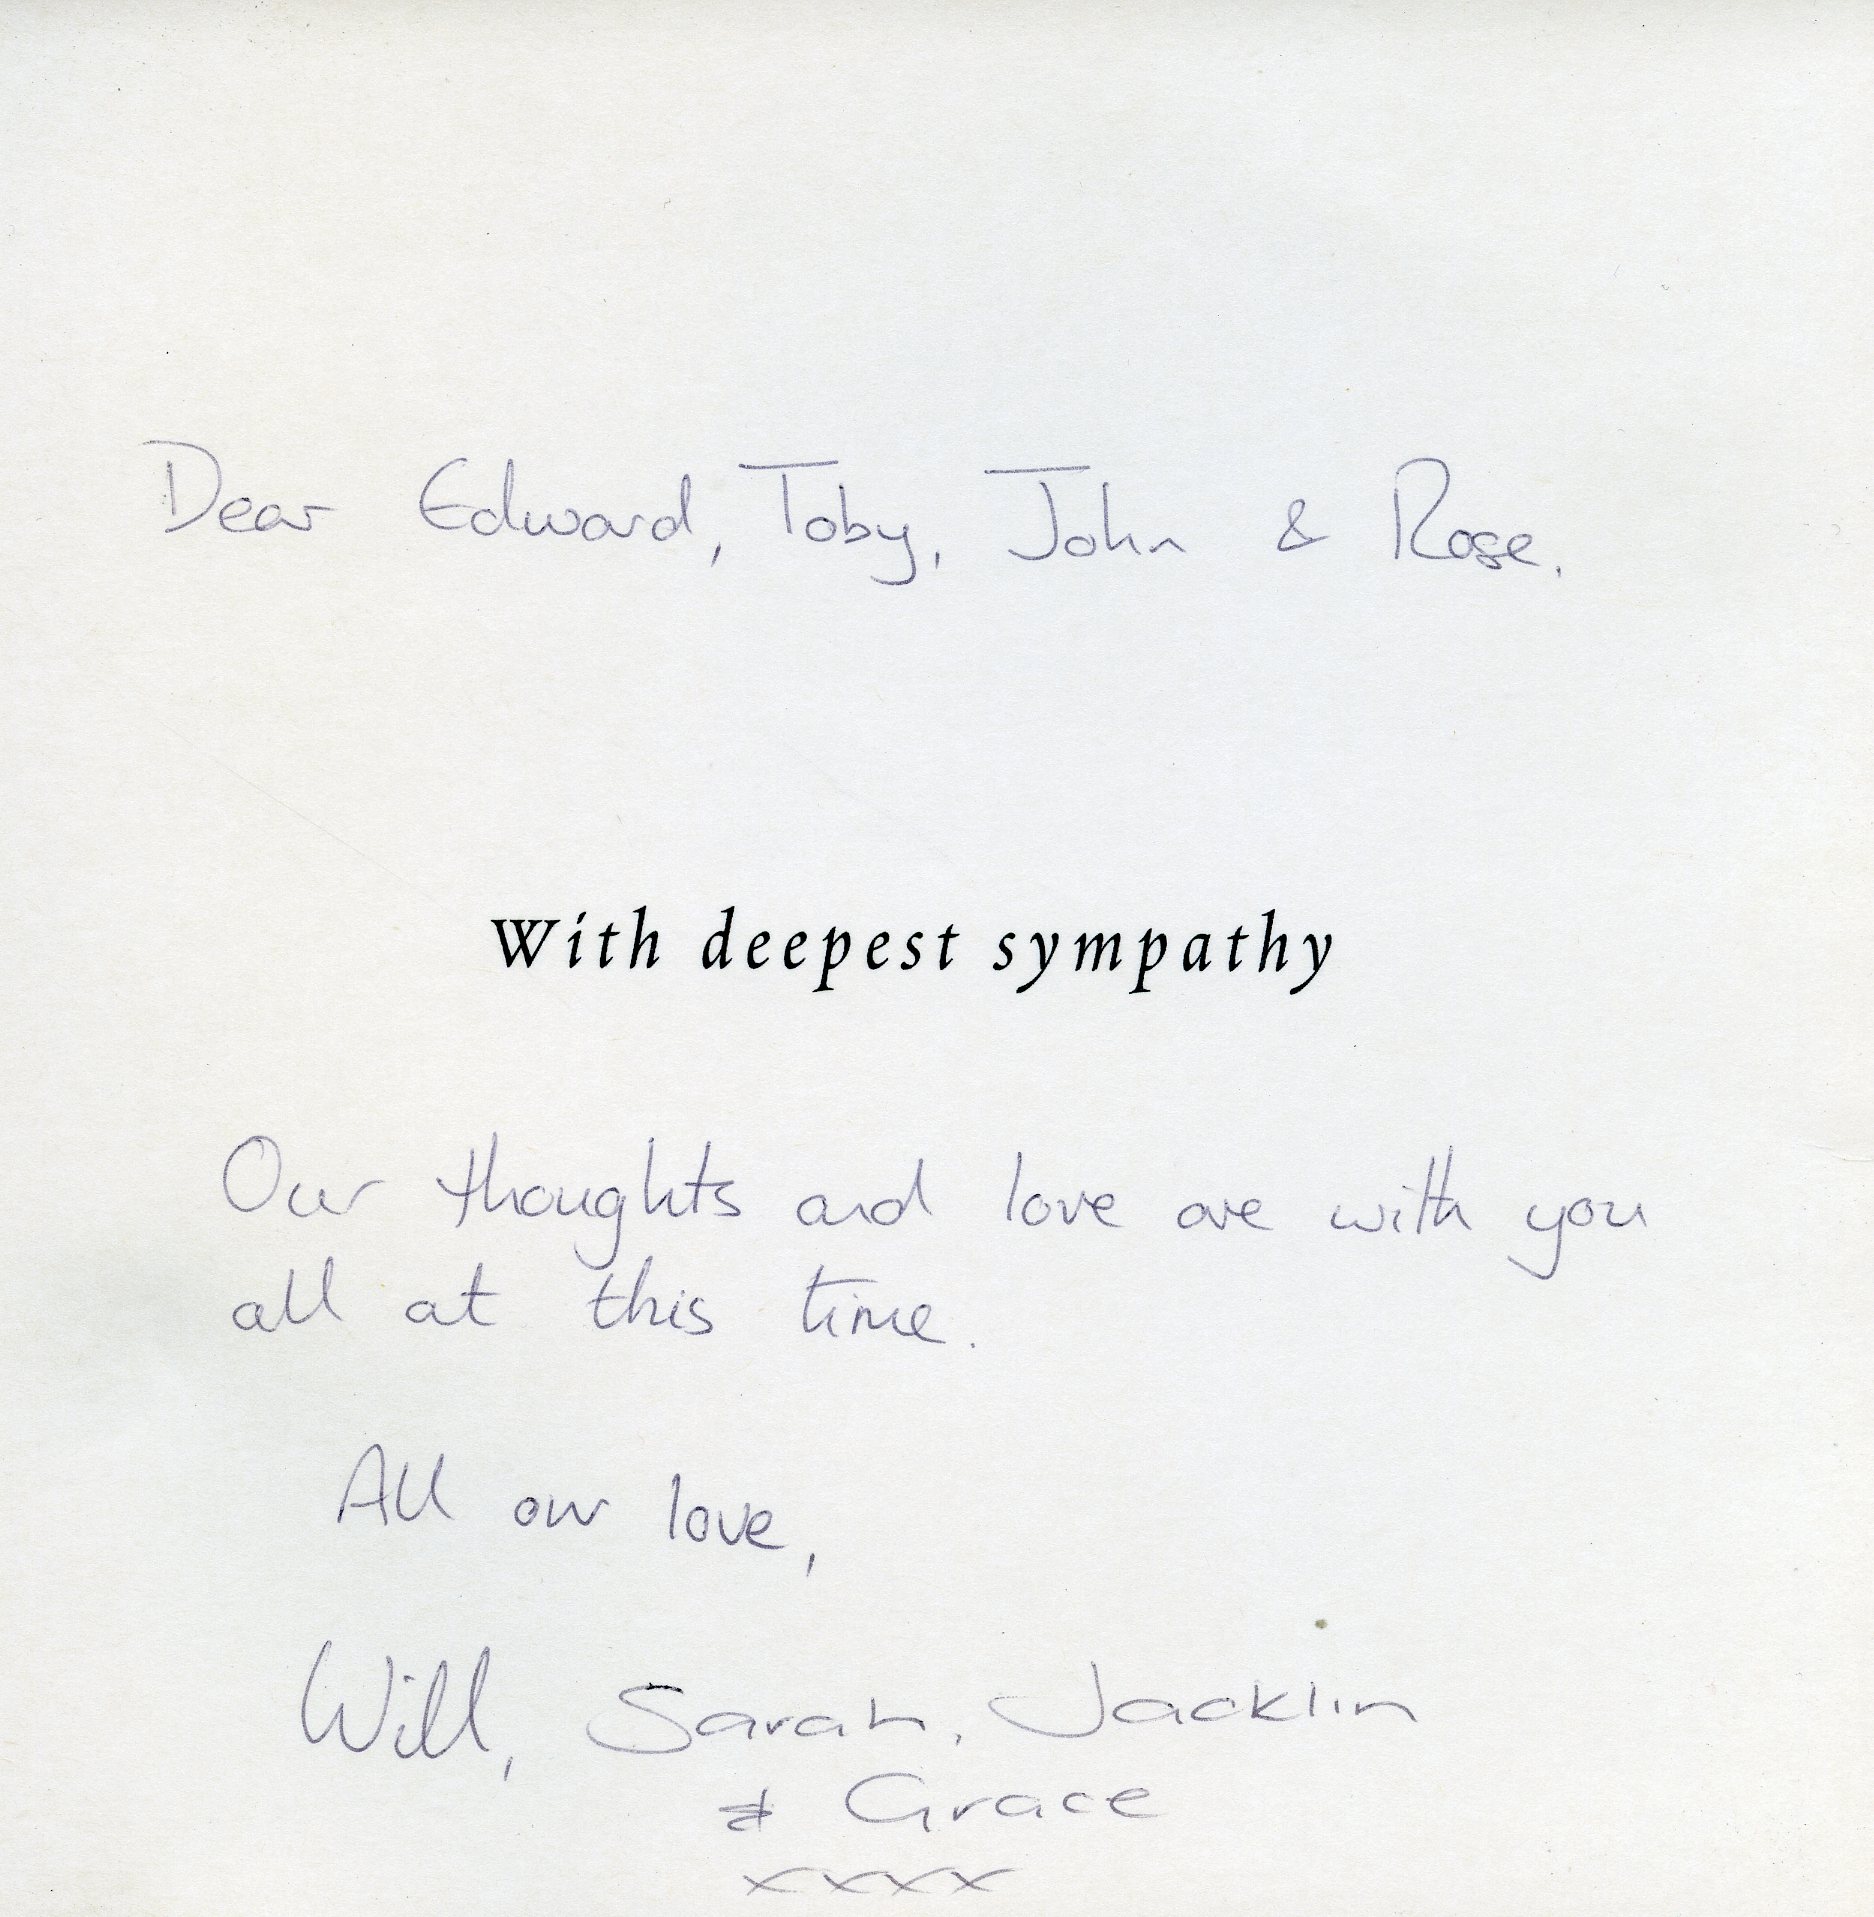 Dear Edward, Toby, John & Rose.
With deepest sympathy
Our thoughts and love are with you
all at this time.
All our love,
Will, Sarah, Jacklin
& Grace
xxxx